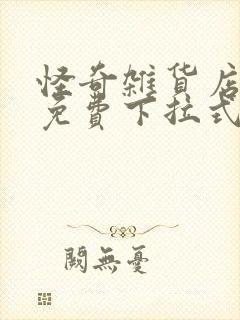 怪奇雜貨店
免費下拉式
闕無憂